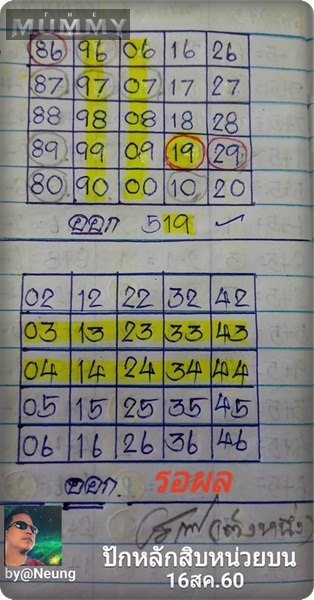 THE
MUMMY
86 96 06 16 26
87 97 07 17 27
88 98 08 18 28
89 99 09 19 29
80 90 00 10 20
ออก 519 ✓
02 12 22 32 42
03 13 23 33 43
04 14 24 34 44
05 15 25 35 45
06 16 26 36 46
ออก. รอผล
(ต้งหนึ่ง)
ปักหลักสิบหน่วยบน
by@Neung 16สค.60